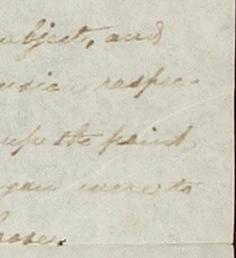 ubject, and
usion respec-
up the point
you were to
hose.